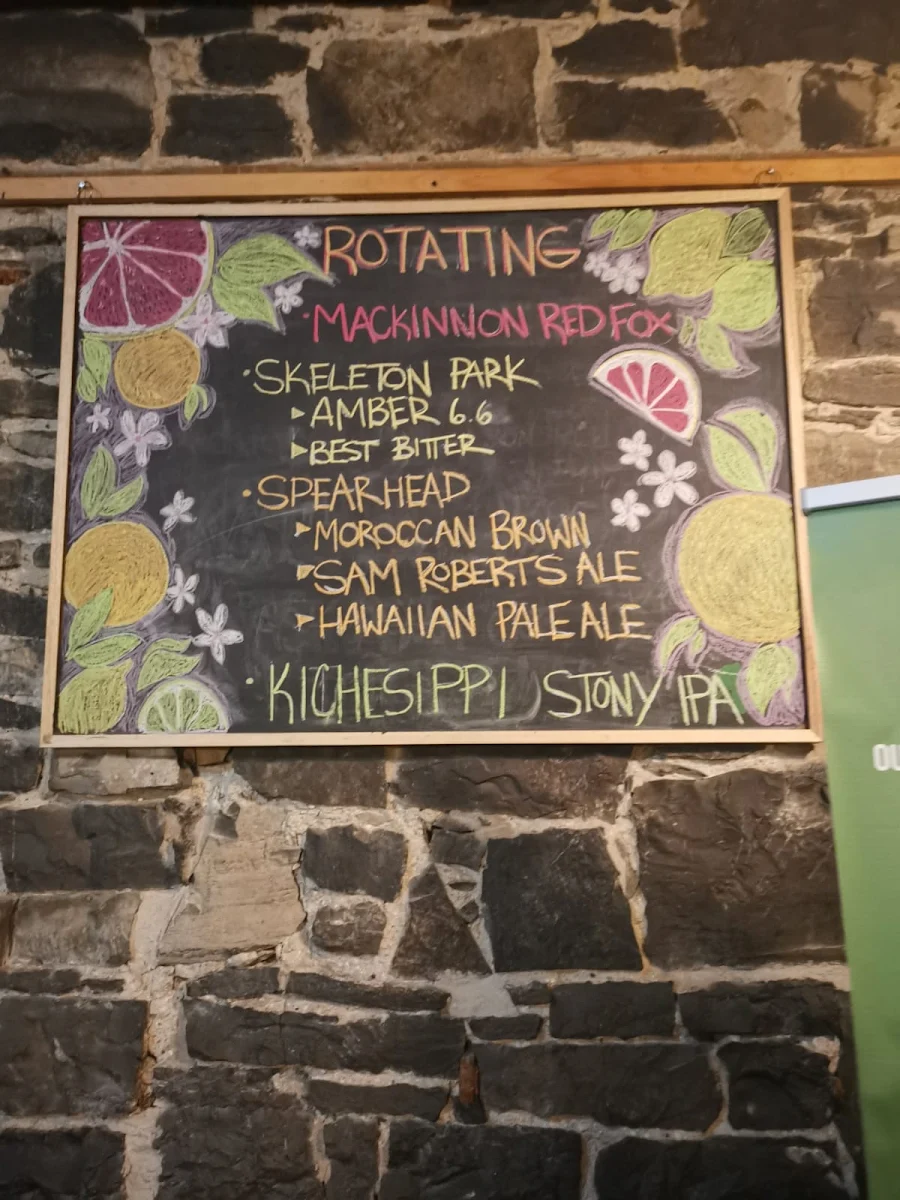 ROTATING
· MACKINNON RED FOX
· SKELETON PARK
▸ AMBER 6.6
▸ BEST BITTER
· SPEARHEAD
▸ MOROCCAN BROWN
▸ SAM ROBERTS ALE
▸ HAWAIIAN PALE ALE
· KICHESIPPI STONY IPA
OU